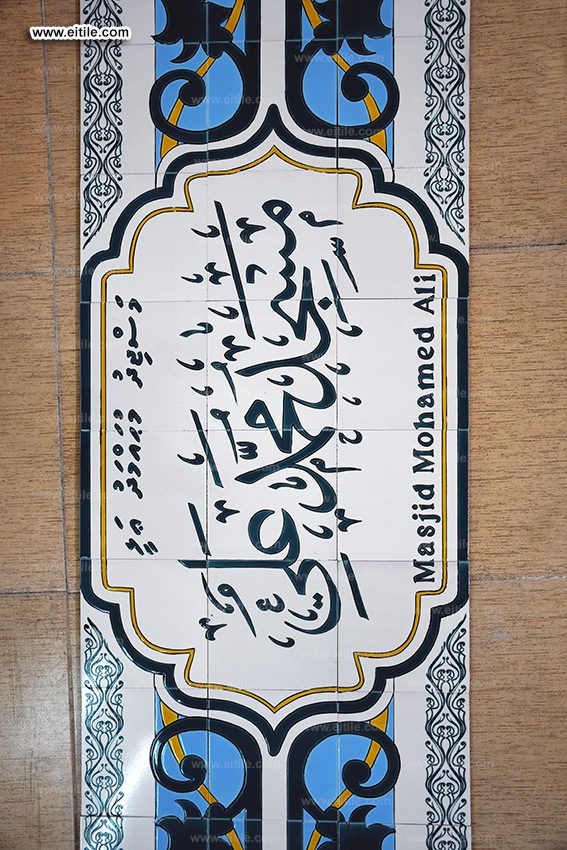 www.eitile.com
މަސްޖިދު
مَسْجِدُ مُحَمَّد عَلِيّ
Masjid Mohamed Ali